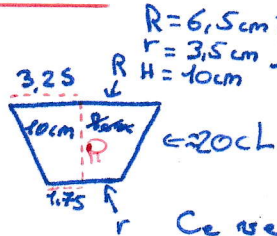 R=6,5cm
r=3,5cm
H=10cm
3,25
R
10cm
R
≈20cL
1,75
r
Ce